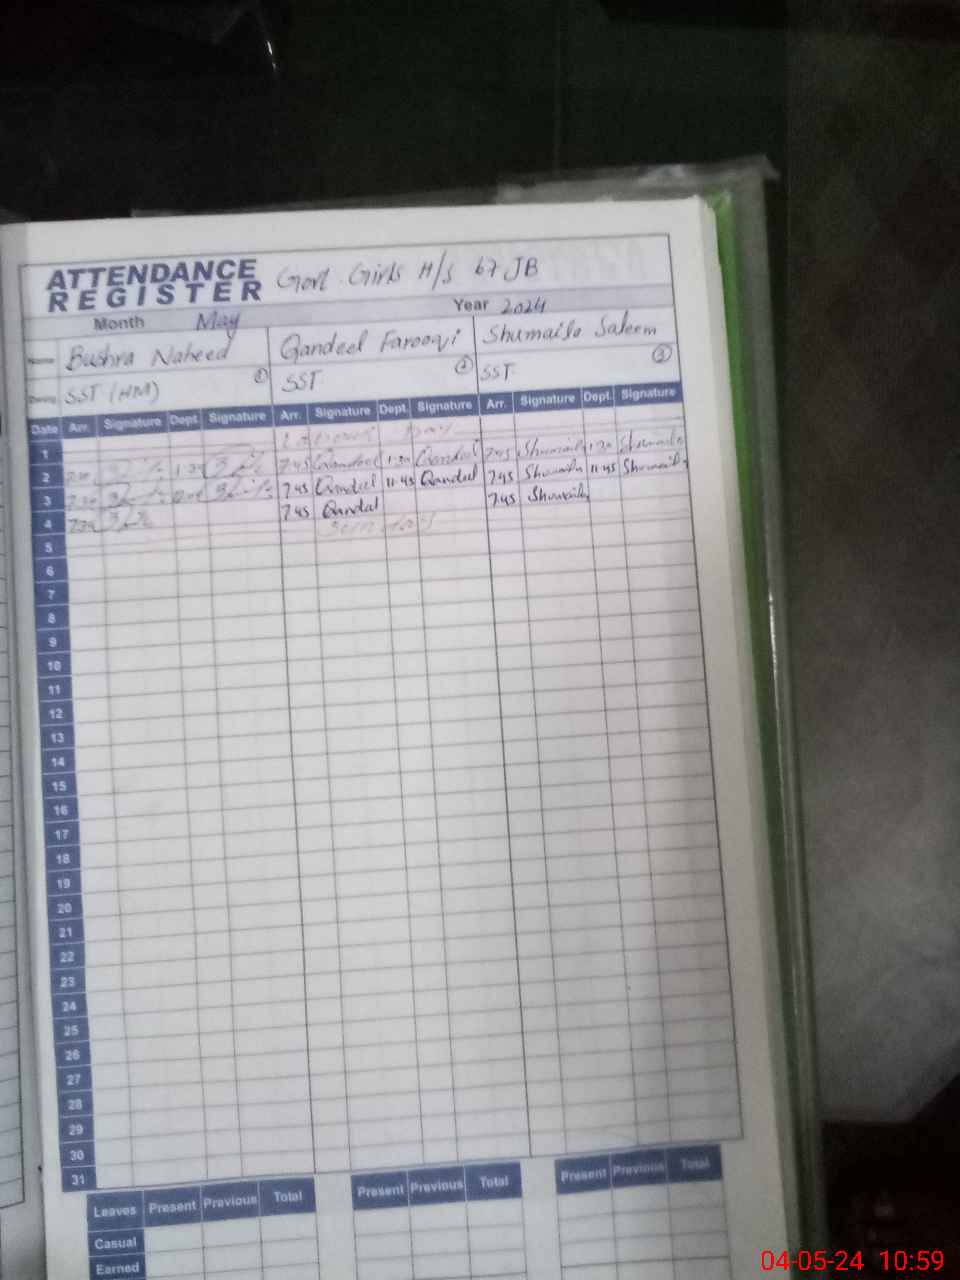 ATTENDANCE REGISTER Govt. Girls H/S 67 JB
Month May Year 2024
Name Bushra Naheed Qandeel Farooqi Shumaila Saleem
SST (HM) 1 SST 2 SST 3
Date Arr. Signature Dept. Signature Arr. Signature Dept. Signature Arr. Signature Dept. Signature
1 Day
2 7:30 1:30 7:45 Qandeel 1:30 Qandeel 7:45 Shumaila 1:30 Shumaila
3 7:30 7:45 Qandeel 11:45 Qandeel 7:45 Shumaila 11:45 Shumaila
4 7:30 7:45 Qandeel 7:45 Shumaila
5 Sunday
6
7
8
9
10
11
12
13
14
15
16
17
18
19
20
21
22
23
24
25
26
27
28
29
30
31
Leaves Present Previous Total Present Previous Total Present Previous Total
Casual
Earned
04-05-24 10:59